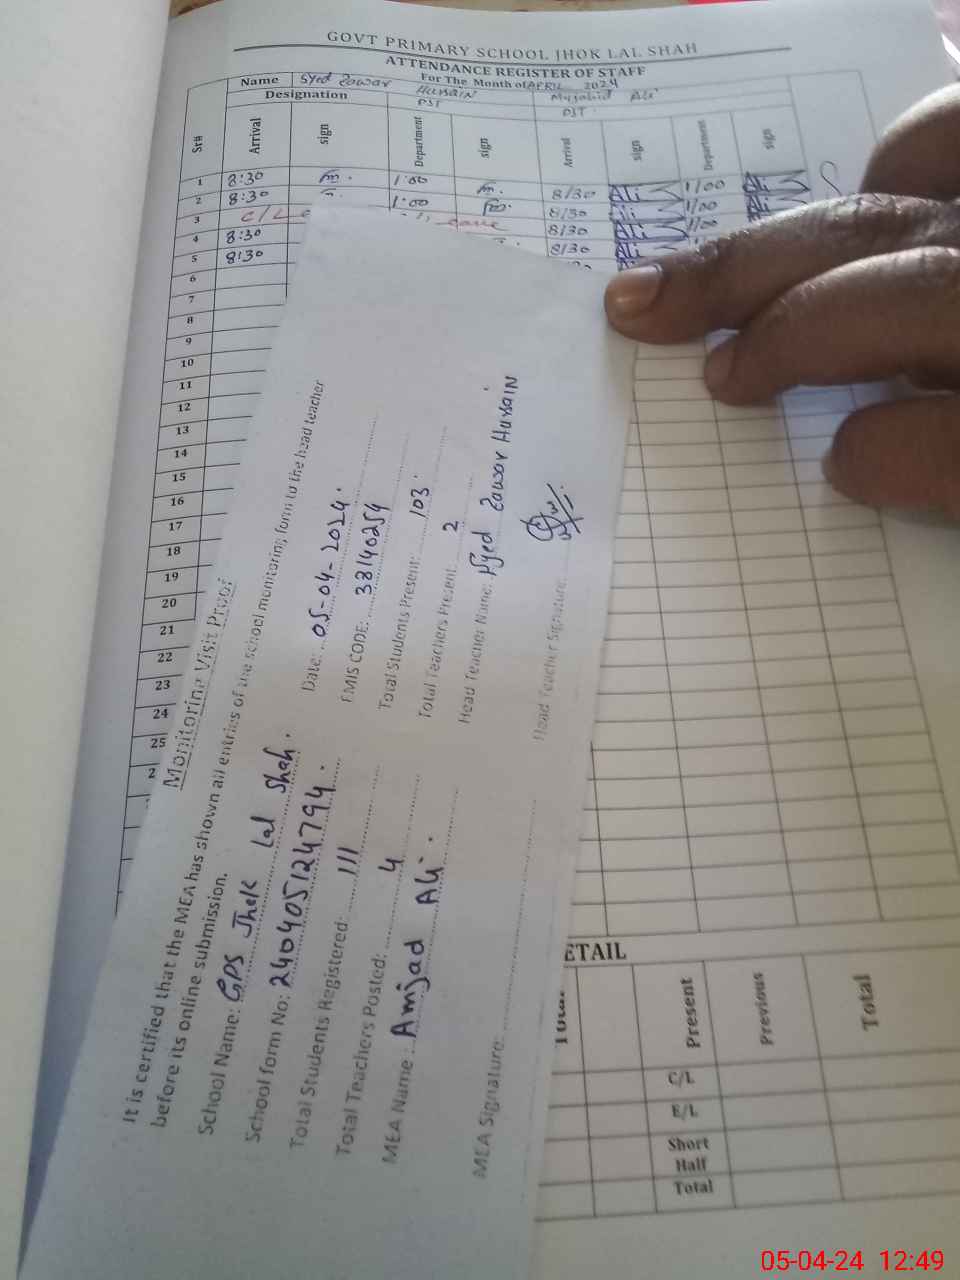 GOVT PRIMARY SCHOOL JHOK LAL SHAH
ATTENDANCE REGISTER OF STAFF
For The Month of APRIL 2024
Name Syed Zawar Hussain Mujahid Ali
Designation PST PST
Sr# Arrival sign Department sign Arrival sign Department sign
1 8:30 1:00 8/30 Ali 1/00 Ali
2 8:30 1:00 8/30 Ali 1/00 Ali
3 C/L 8/30 Ali 1/00
4 8:30 8/30 Ali
5 8:30
6
7
8
9
10
11
12
13
14
15
16
17
18
19
20
21
22
23
24
25
2
Monitoring Visit Proof
It is certified that the MEA has shown all entries of the school monitoring form to the head teacher
before its online submission.
School Name: GPS Jhok Lal Shah. Date: 05-04-2024.
School form No: 240405124794. EMIS CODE: 38140254
Total Students Registered: 111 Total Students Present: 103
Total Teachers Posted: 4 Total Teachers Present: 2
MEA Name: Amjad Ali. Head Teacher Name: Syed Zawar Hussain
MEA Signature: Head Teacher Signature:
ETAIL
Total Present Previous Total
C/L
E/L
Short
Half
Total
05-04-24 12:49